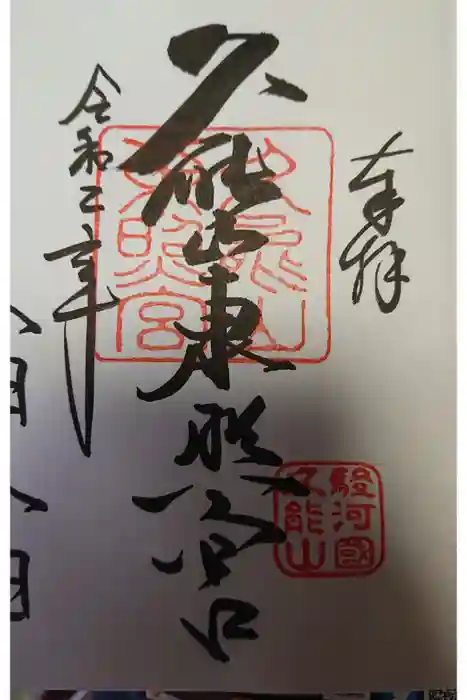 奉拝
久能山東照宮
久能山東照宮
駿河國久能山
令和二年
八月八日